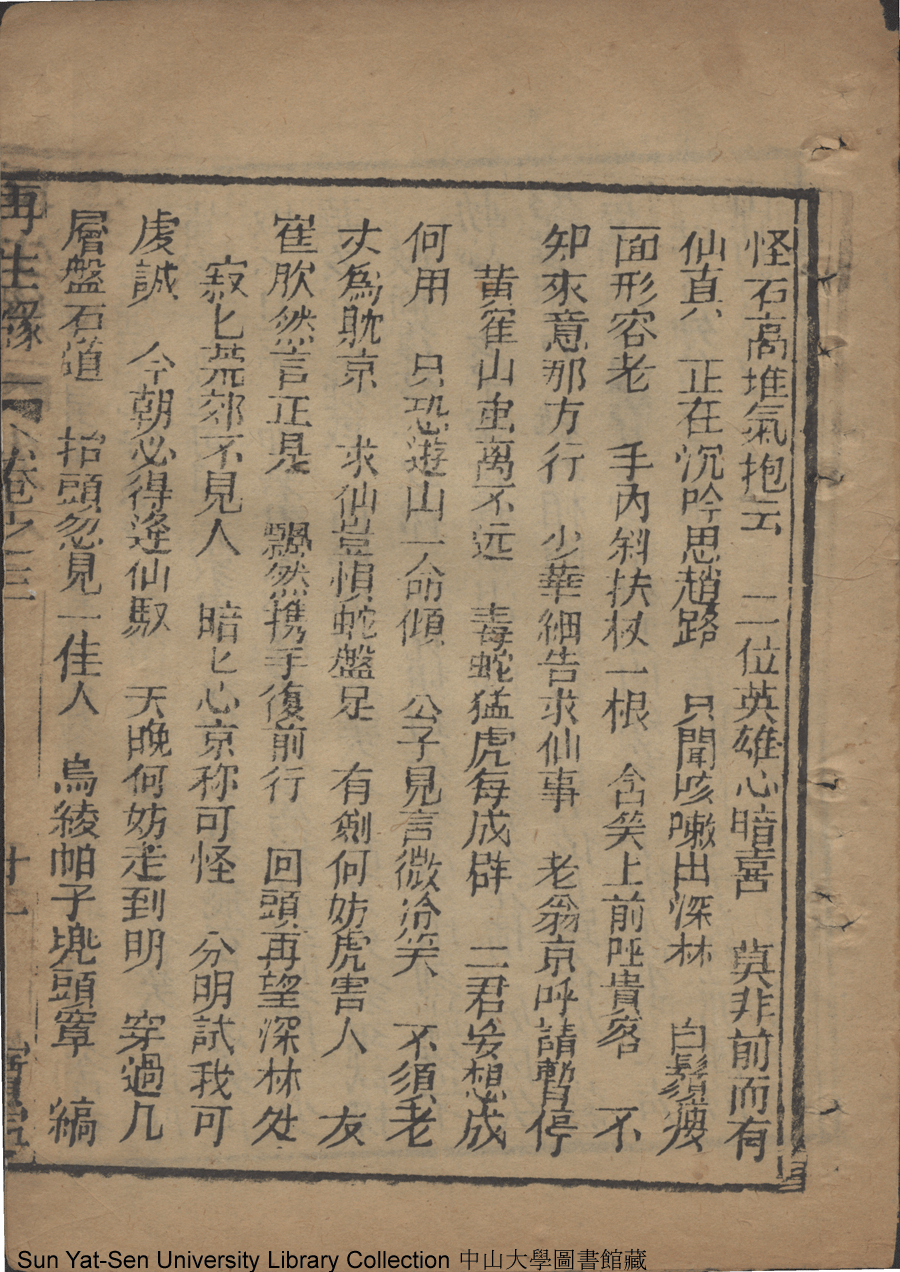 怪石高堆氣抱云　二位英雄心暗喜　莫非前面有
仙真　正在沉吟思趲路　只聞咳嗽出深林　白鬚瘦
面形容老　手內斜扶杖一根　含笑上前呼貴客　不
知來意那方行　少華細告求仙事　老翁京呼請暫停
黄隺山重离不远　毒蛇猛虎每成群　二君妄想成
何用　只恐遊山一命傾　公子見言微冷笑　不須老
丈爲耽京　求仙豈惧蛇盤足　有劍何妨虎害人　友
隺欣然言正是　飄然携手復前行　回頭再望深林処
寂匕荒郊不見人　暗匕心京称可怪　分明試我可
虔誠　今朝必得逢仙馭　天晚何妨走到明　穿過几
層盤石道　抬頭忽見一佳人　烏綾帕子兜頭罩　縞
再生緣　卷之三　十一
Sun Yat-Sen University Library Collection 中山大學圖書館藏